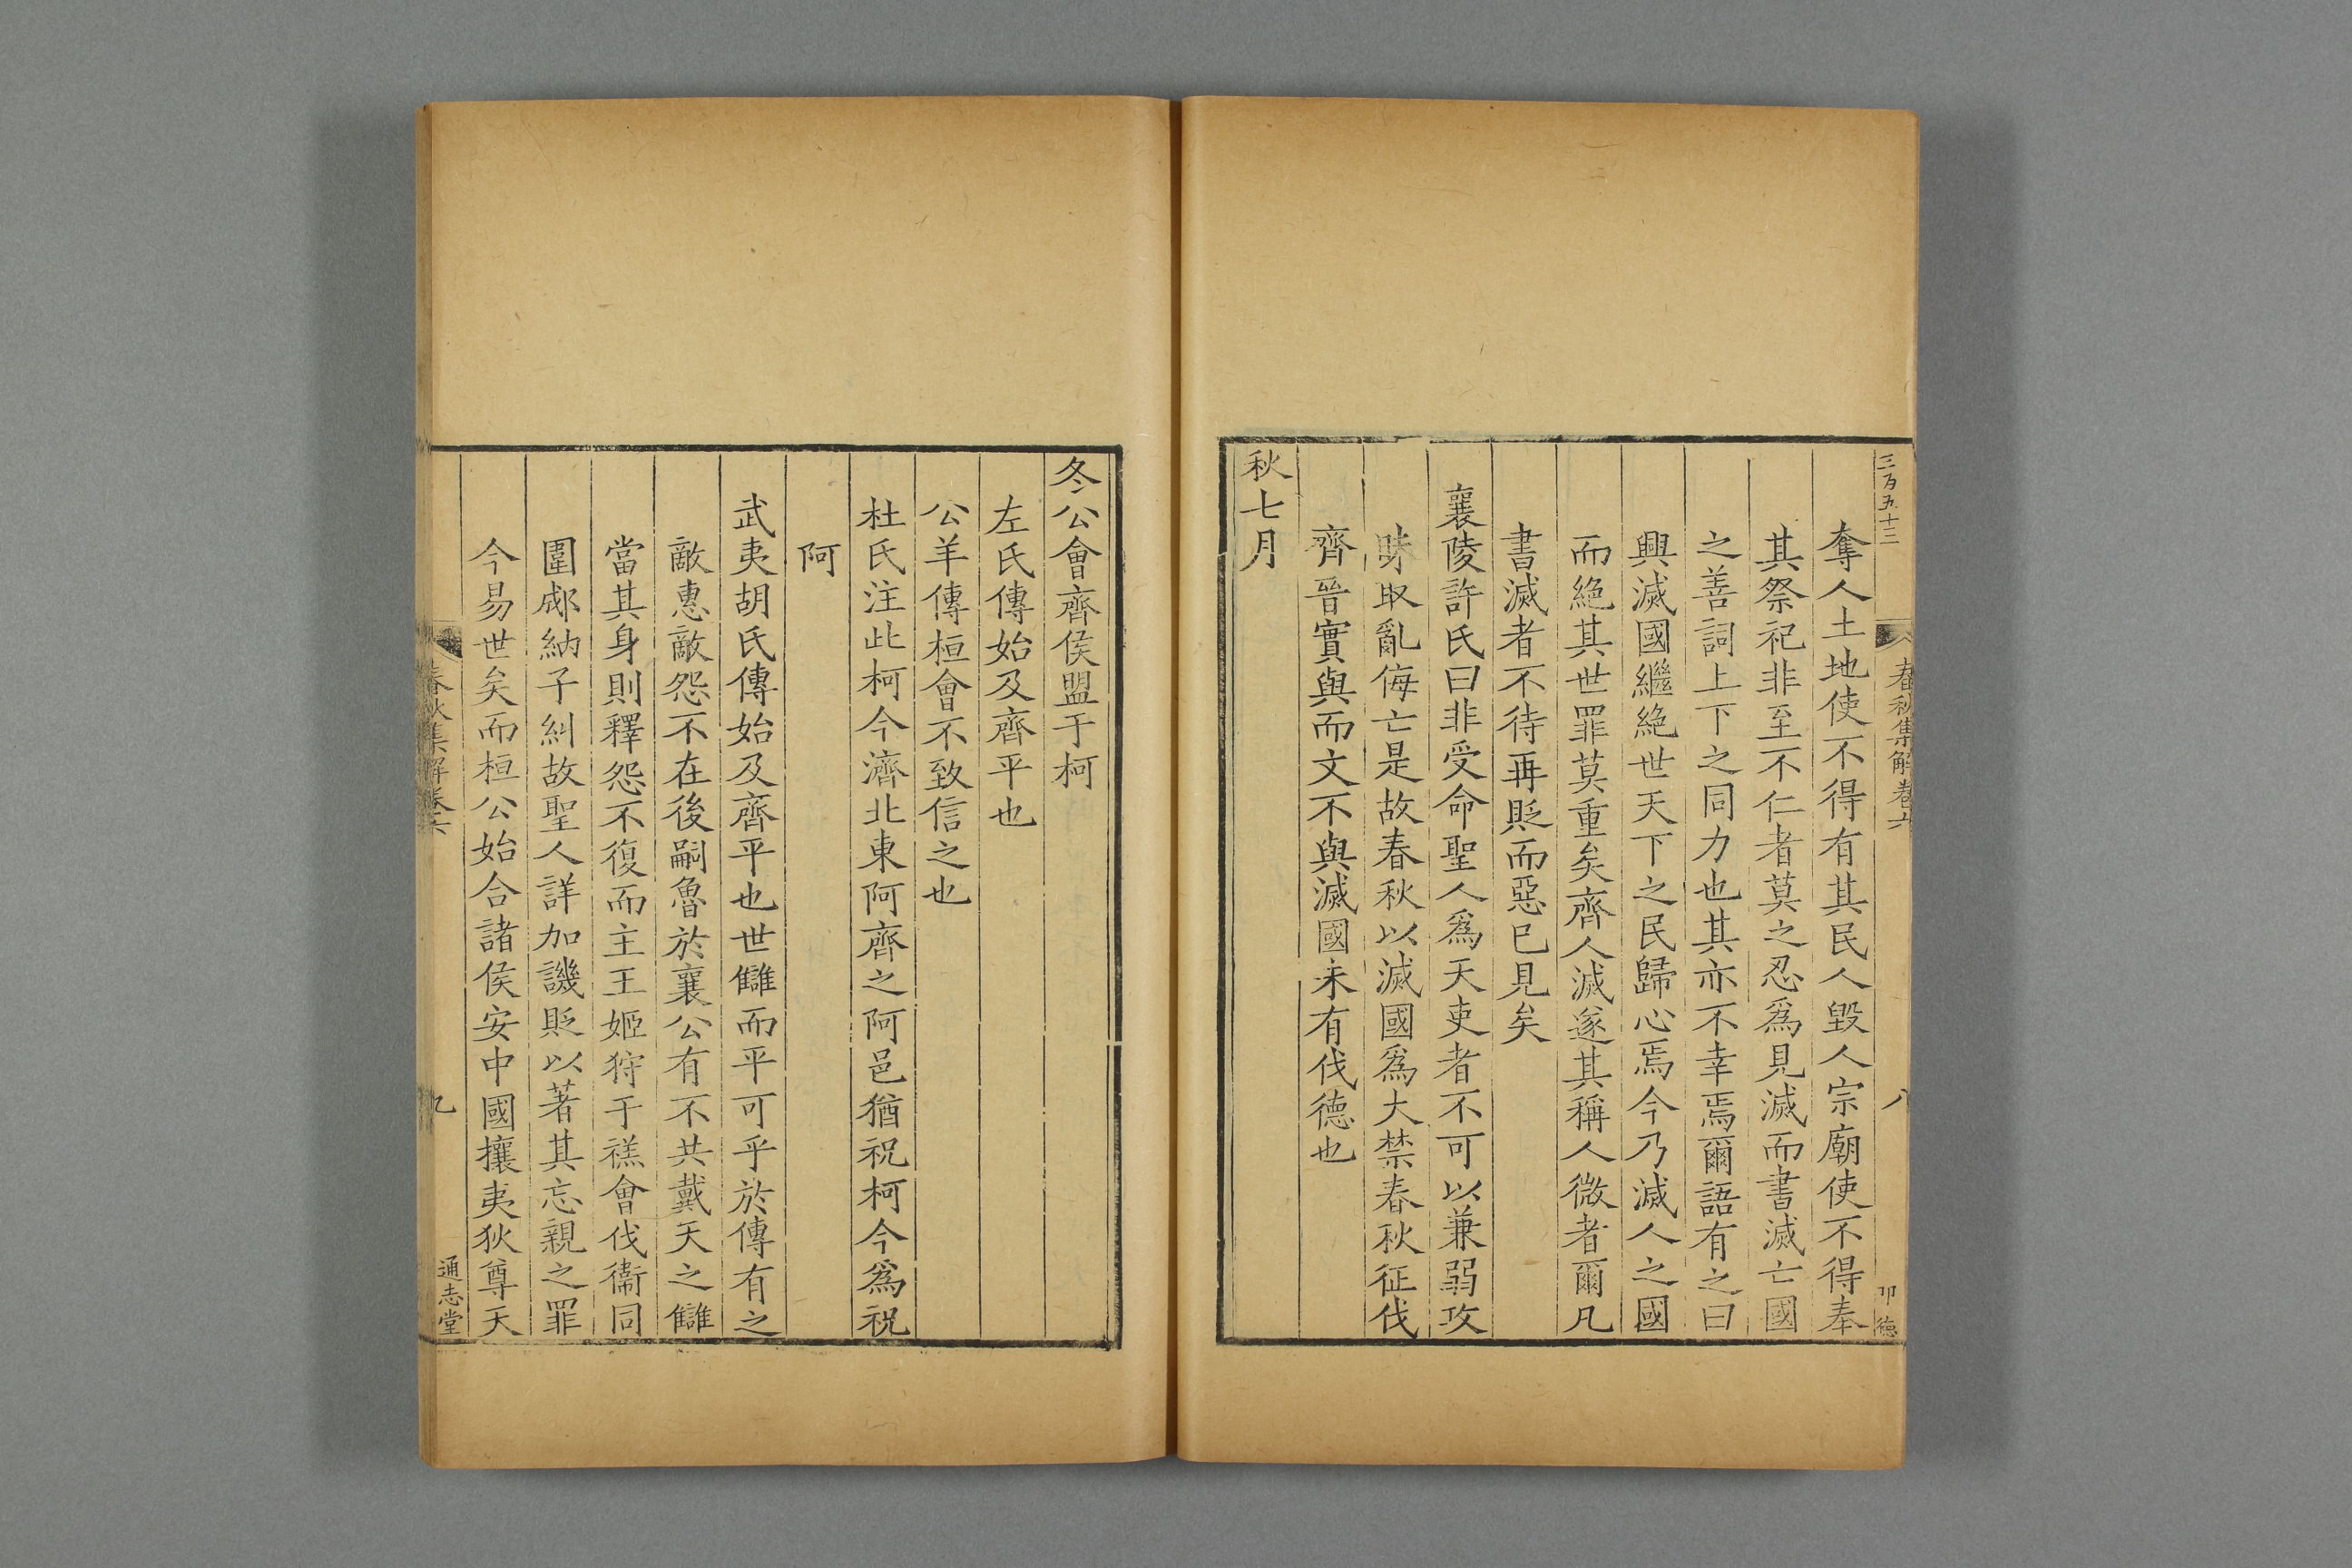 三百五十三
春秋集解卷六
八
卭德
奪人土地使不得有其民人毀人宗廟使不得奉
其祭祀非至不仁者莫之忍爲見滅而書滅亡國
之善詞上下之同力也其亦不幸焉爾語有之曰
興滅國繼絶世天下之民歸心焉今乃滅人之國
而絶其世罪莫重矣齊人滅遂其稱人微者爾凡
書滅者不待再貶而惡已見矣
襄陵許氏曰非受命聖人爲天吏者不可以兼弱攻
昧取亂侮亡是故春秋以滅國爲大禁春秋征伐
齊晉實與而文不與滅國未有伐德也
秋七月
冬公會齊侯盟于柯
左氏傳始及齊平也
公羊傳桓會不致信之也
杜氏注此柯今濟北東阿齊之阿邑猶祝柯今爲祝
阿
武夷胡氏傳始及齊平也世讎而平可乎於傳有之
敵惠敵怨不在後嗣魯於襄公有不共戴天之讎
當其身則釋怨不復而主王姬狩于禚會伐衞同
圍郕納子糾故聖人詳加譏貶以著其忘親之罪
今易世矣而桓公始合諸侯安中國攘夷狄尊天
春秋集解卷六
九
通志堂